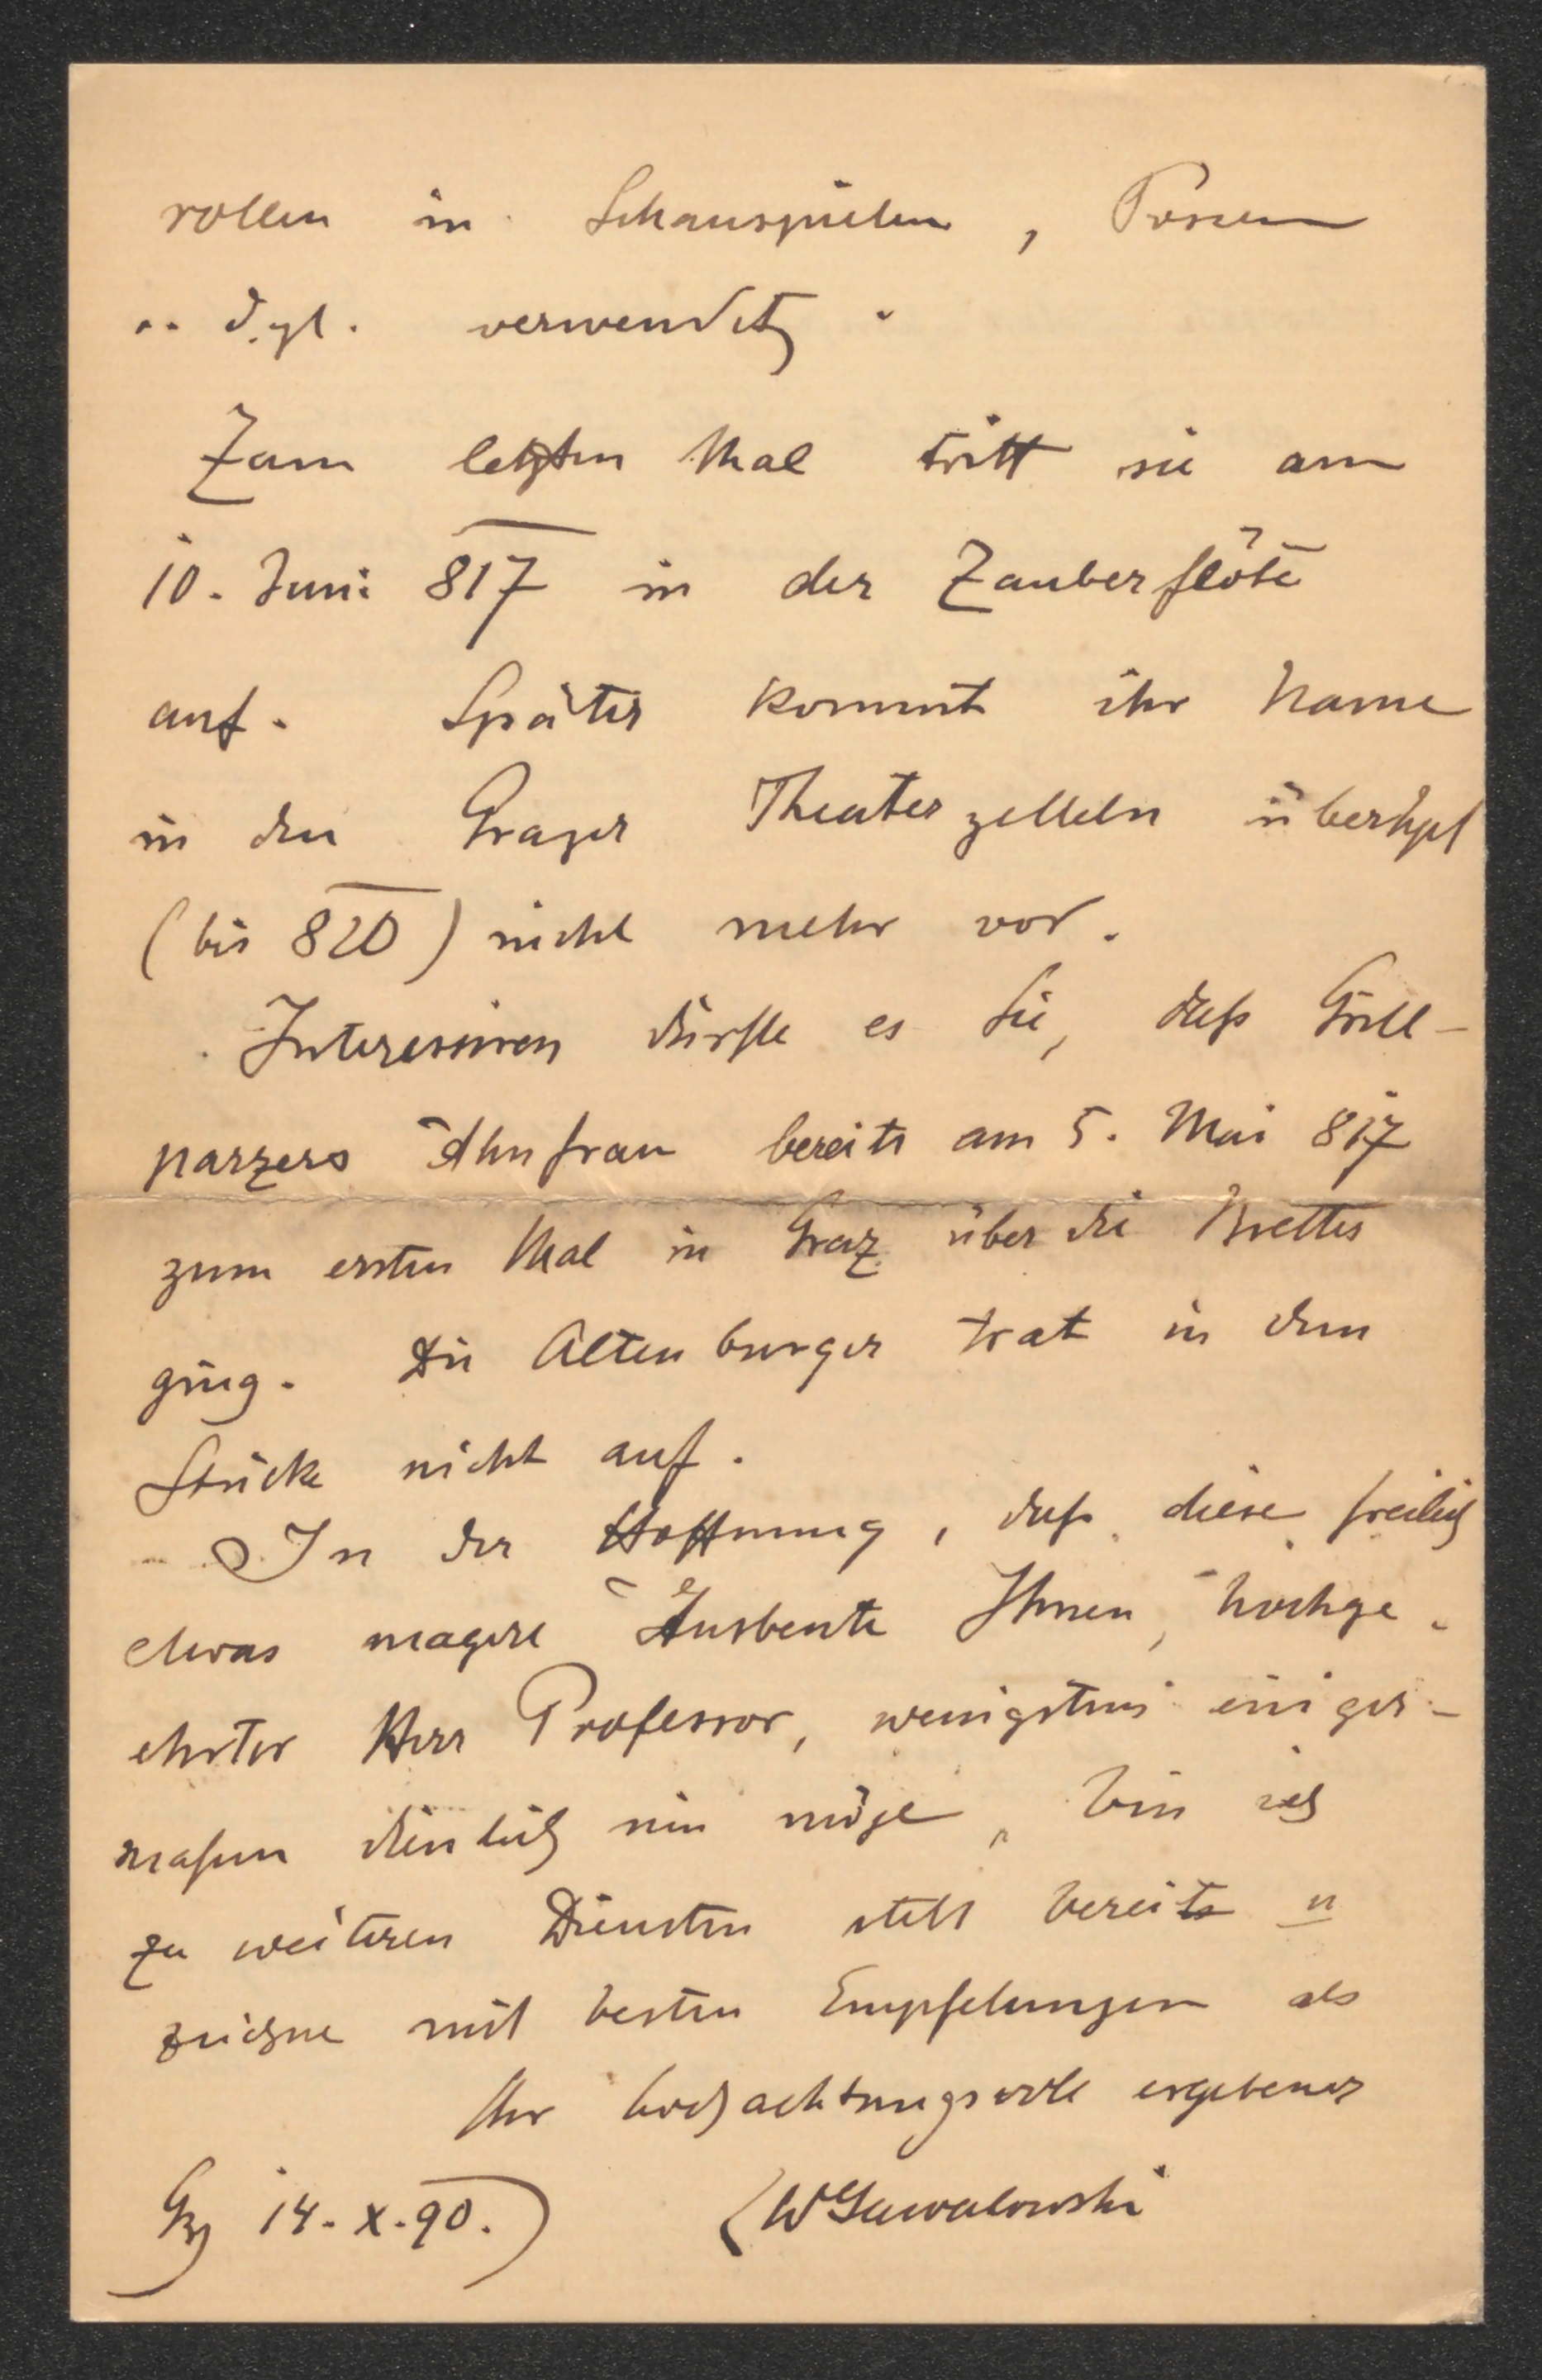 rollen in Schauspielen, Possen
u. dgl. verwendet.
Zum letzten Mal tritt sie am
10. Juni 817 in der Zauberflöte
auf. Später kommt ihr Name
in den Grazer Theaterzetteln überhpt
(bis 820) nicht mehr vor.
Interessiren dürfte es Sie, daß Grill-
parzers Ahnfrau bereits am 5. Mai 817
zum ersten Mal in Graz über die Bretter
ging. Die Altenburger trat in dem
Stücke nicht auf.
In der Hoffnung, daß diese freilich
etwas magere Ausbeute Ihnen, hochge-
ehrter Herr Professor, wenigstens einiger-
maßen dienlich sein möge, bin ich
zu weiteren Diensten stets bereit u
zeichne mit besten Empfelungen als
Ihr hochachtungsvoll ergebener
Gz 14. X. 90.) (WGawalowski